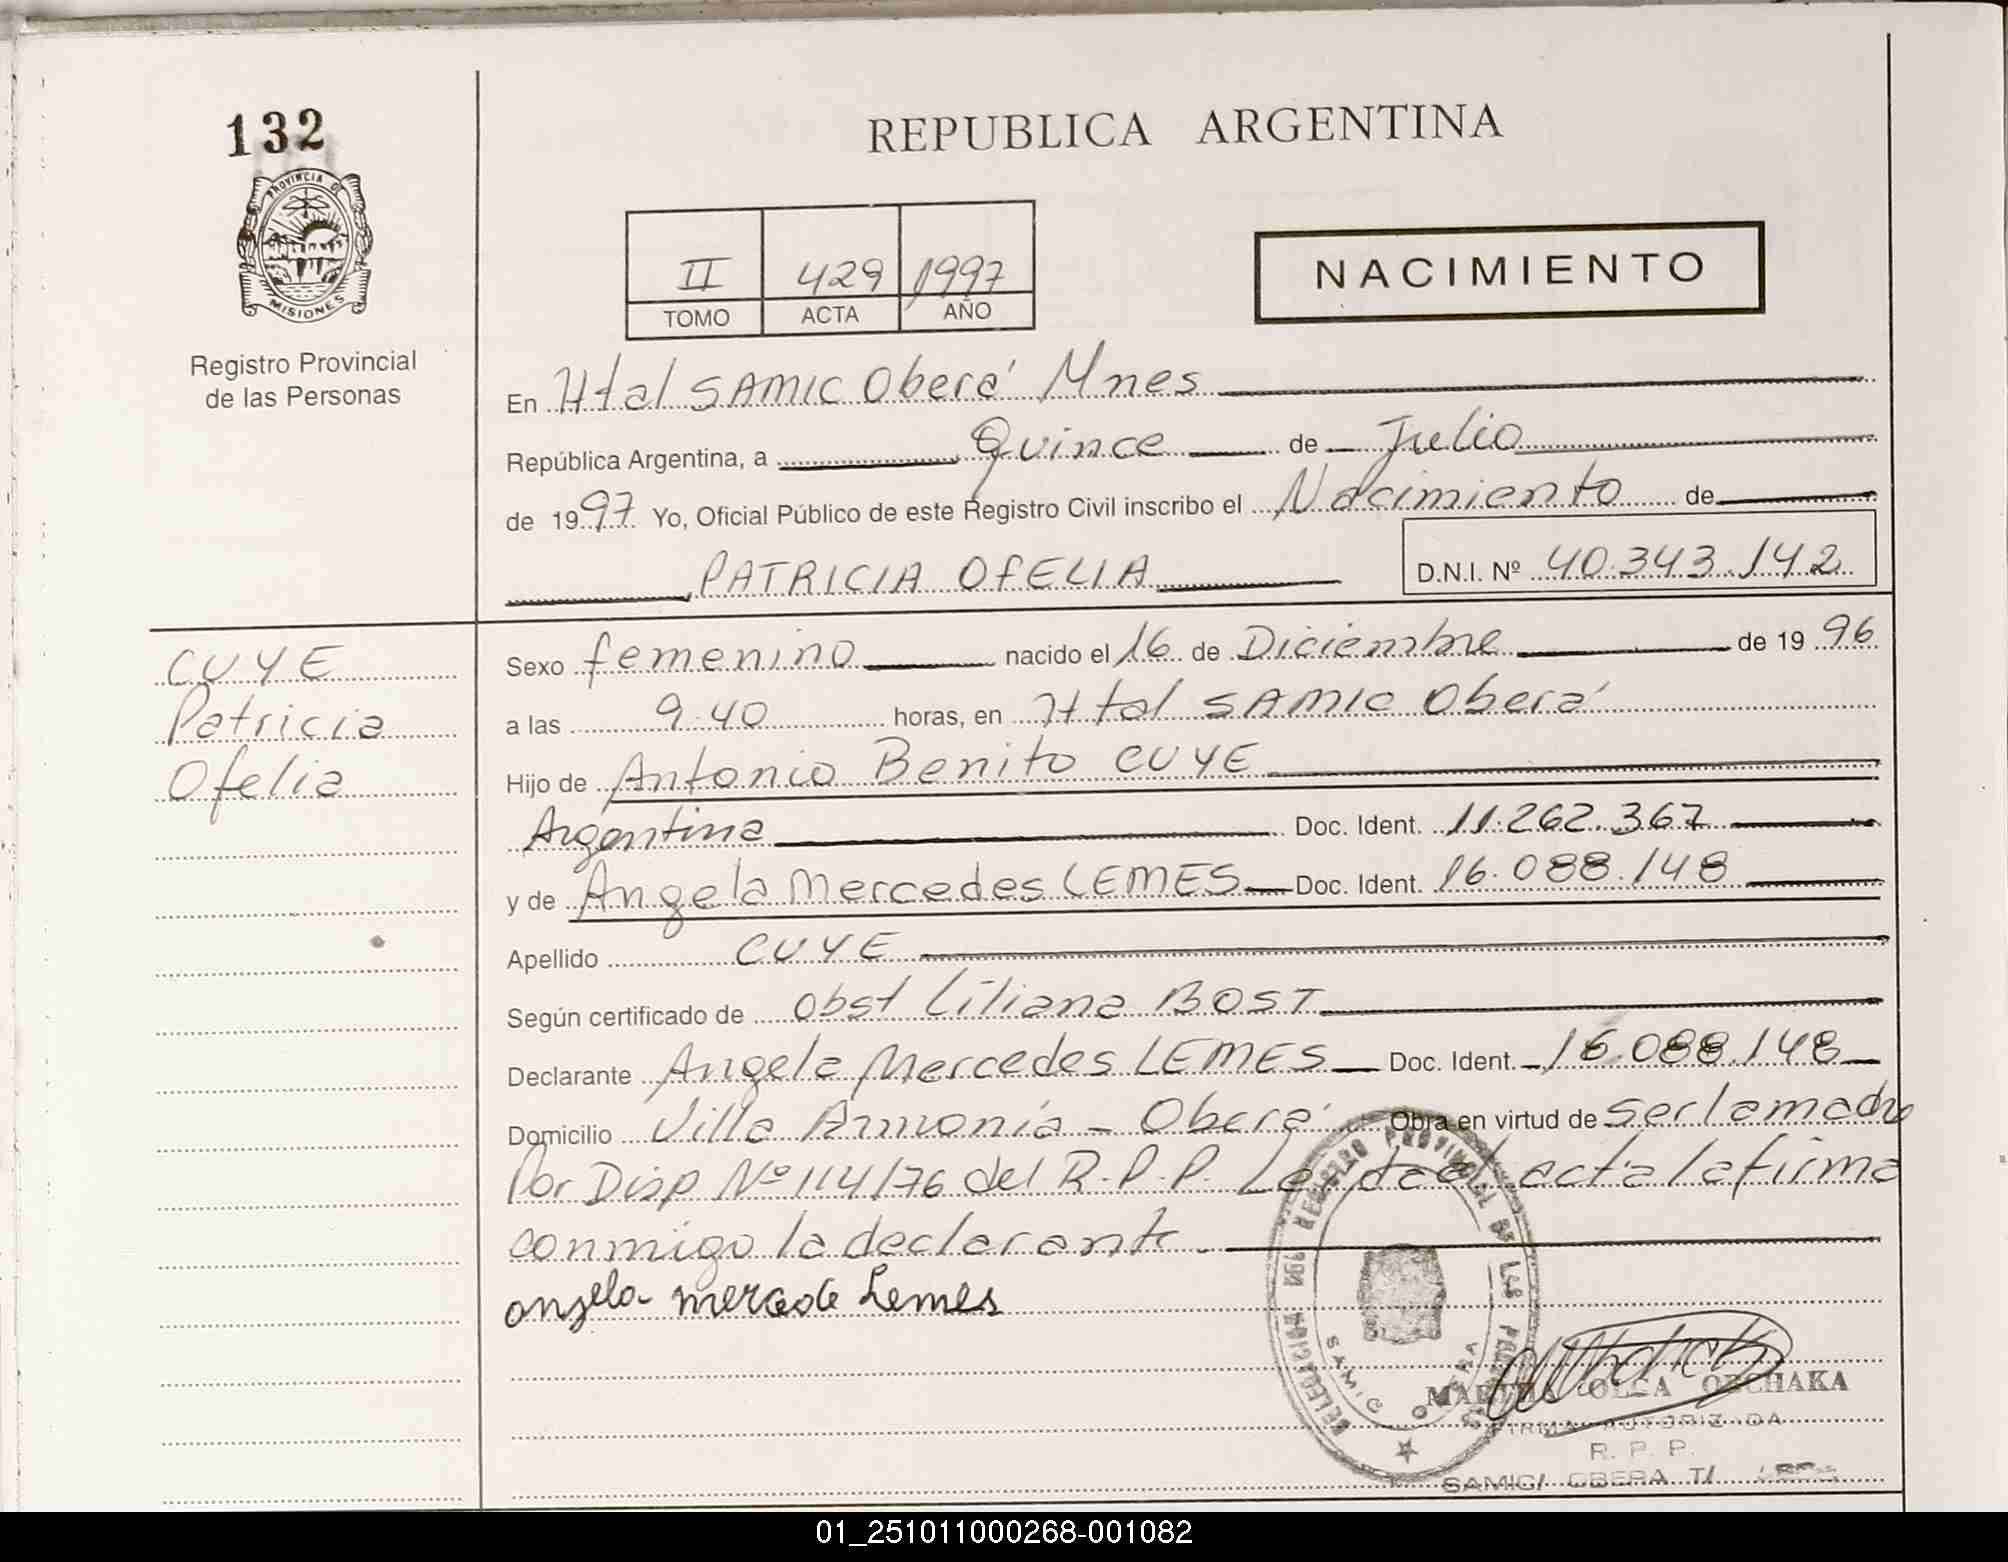 132
PROVINCIA DE
MISIONES
Registro Provincial
de las Personas
REPUBLICA ARGENTINA
II 429 1997
TOMO ACTA AÑO
NACIMIENTO
En Htal SAMIC Oberá Mnes
República Argentina, a Quince de Julio
de 1997 Yo, Oficial Público de este Registro Civil inscribo el Nacimiento de
PATRICIA OFELIA D.N.I. Nº 40.343.142
CUYE
Patricia
Ofelia
Sexo femenino nacido el 16 de Diciembre de 1996
a las 9.40 horas, en Htal SAMIC Oberá
Hijo de Antonio Benito CUYE
Argentina Doc. Ident. 11.262.367
y de Angela Mercedes LEMES Doc. Ident. 16.088.148
Apellido CUYE
Según certificado de Obst Liliana BOST
Declarante Angela Mercedes LEMES Doc. Ident. 16.088.148
Domicilio Villa Armonía - Oberá Obra en virtud de ser la madre
Por Disp Nº 114/76 del R.P.P. Leída el acta la firma
conmigo la declarante.
angela mercede Lemes
REGISTRO PROVINCIAL DE LAS
SAMIC OBERA
MARTHA OLGA
FIRMA AUTORIZADA
R. P. P.
SAMIC/ OBERA T/
01_251011000268-001082